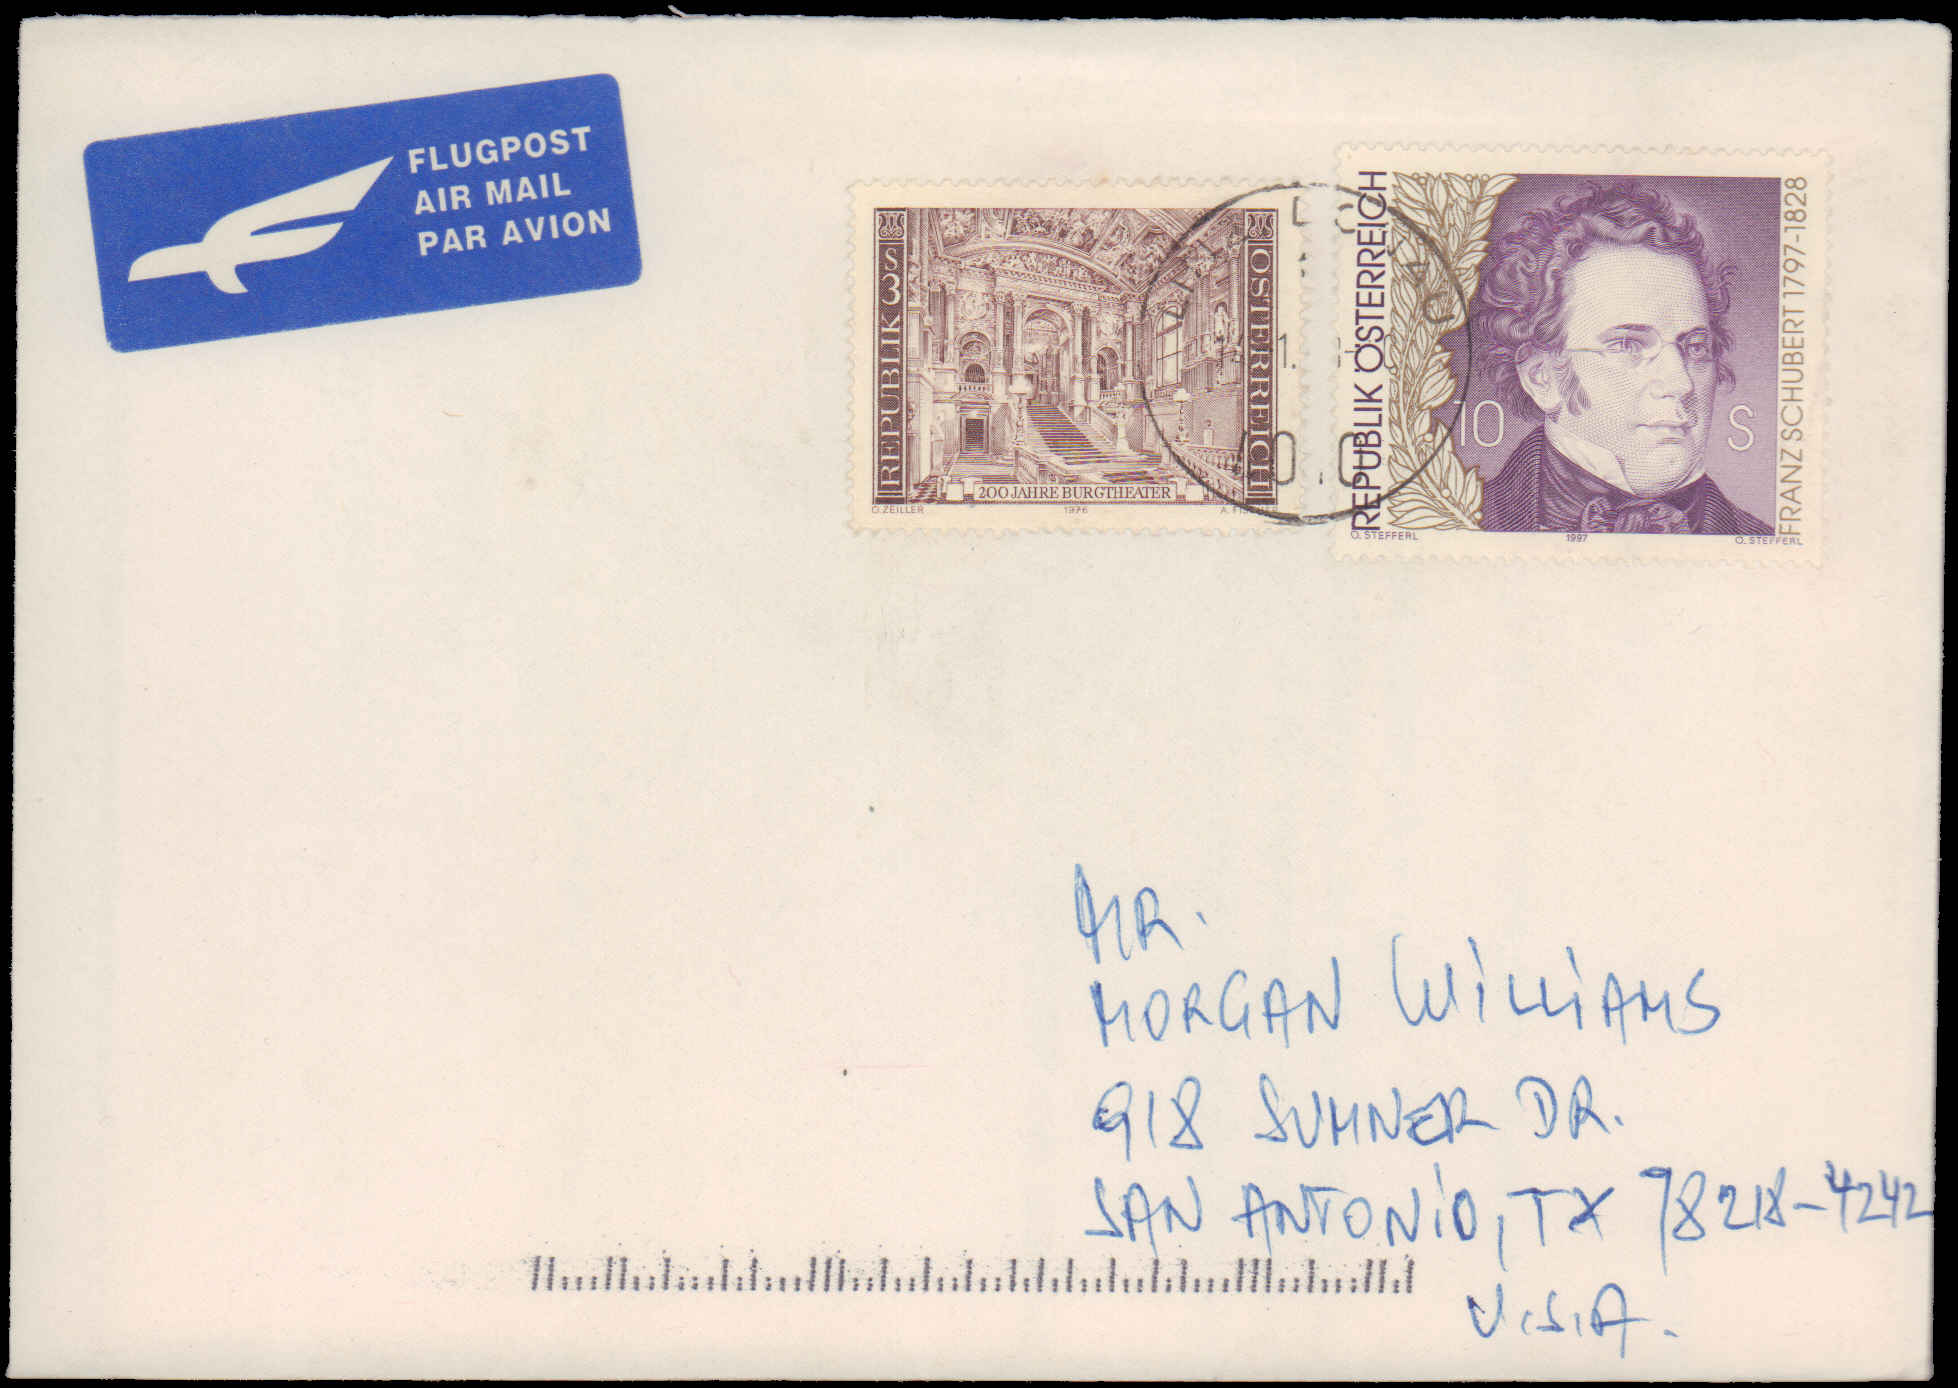 FLUGPOST
AIR MAIL
PAR AVION
REPUBLIK S3 ÖSTERREICH
200 JAHRE BURGTHEATER
O. ZEILLER 1976 A. FISCHER
REPUBLIK ÖSTERREICH
10 S
FRANZ SCHUBERT 1797-1828
O. STEFFERL 1997 O. STEFFERL
MR.
MORGAN WILLIAMS
918 SUMNER DR.
SAN ANTONIO, TX 78218-4242
U.S.A.